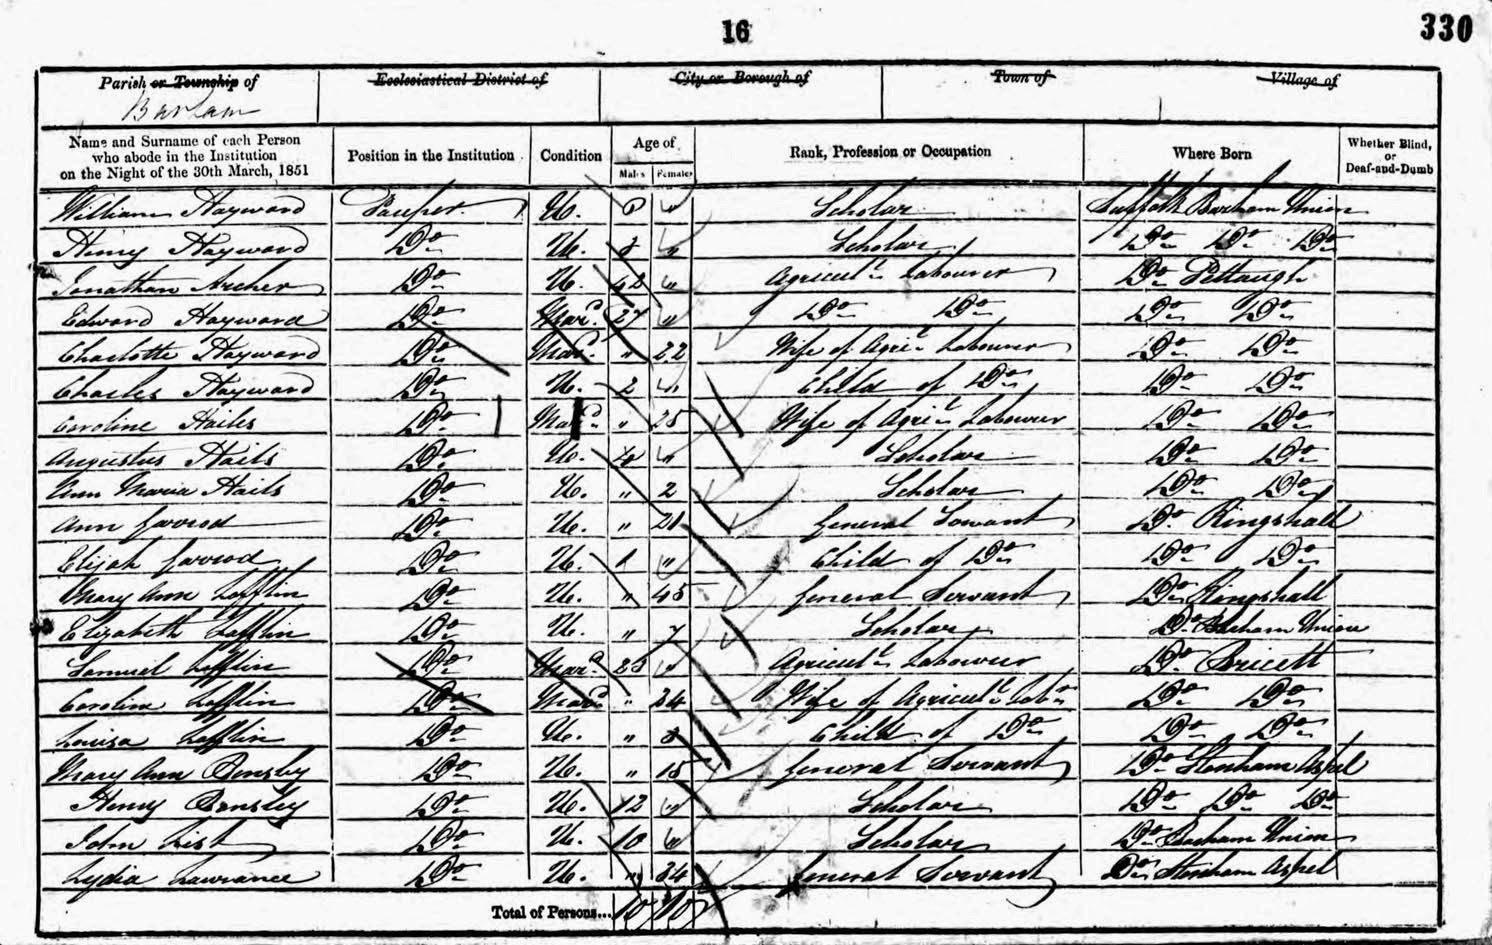 16
330
Parish or Township of Ecclesiastical District of City or Borough of Town of Village of
Barham
Name and Surname of each Person who abode in the Institution on the Night of the 30th March, 1851 Position in the Institution Condition Age of Males Females Rank, Profession or Occupation Where Born Whether Blind, or Deaf-and-Dumb
William Hayward Pauper U. " Scholar Suffolk Barham Union
Henry Hayward Do U. " Scholar Do Do Do
Jonathan Archer Do U. 42 " Agricul. Labourer Do Pettaugh
Edward Hayward Do Mard. 27 " Do Do Do Do
Charlotte Hayward Do Mard. " 22 Wife of Agril. Labourer Do Do
Charles Hayward Do U. 2 " Child of Do Do Do
Caroline Hailes Do Mard. " 25 Wife of Agril. Labourer Do Do
Augustus Hails Do U. 4 " Scholar Do Do
Ann Maria Hails Do U. " 2 Scholar Do Do
Ann Garrod Do U. " 21 General Servant Do Ringshall
Elijah Garrod Do U. 1 " Child of Do Do Do
Mary Ann Lafflin Do U. " 45 General Servant Do Ringshall
Elizabeth Lafflin Do U. " 7 Scholar Do Barham Union
Samuel Lafflin Do Mard. 25 " Agricull. Labourer Do Bricett
Caroline Lafflin Do Mard " 24 Wife of Agricull. Labr Do Do
Louisa Lafflin Do U. " Child of Do Do Do
Mary Ann Bensley Do U. " 15 General Servant Do Stonham Aspel
Henry Bensley Do U. 12 " Scholar Do Do Do
John List Do U. 10 " Scholar Do Barham Union
Lydia Lawrance Do U. " 34 General Servant Do Stonham Aspel
Total of Persons... 10 10